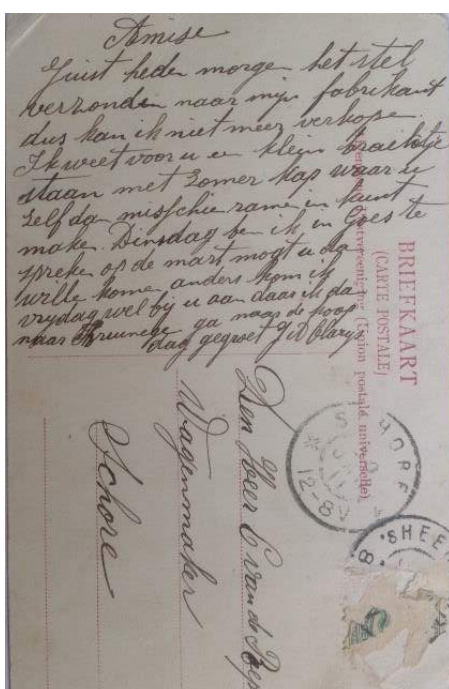 Amise
Juist heden morgen het stel
verzonden naar mijn fabrikant
dus kan ik niet meer verkope.
Ik weet voor u een klein braekje
staan met Zomer kap waar u
zelf dan misschie rame in kunt
make. Dinsdag ben ik in Goes te
spreke op de mart mogt u da
wille kome anders kom ik
vrijdag wel bij u aan daar ik da
naar Kruinege ga naar de koop
dag gegroet
BRIEFKAART
(CARTE POSTALE)
(Union postale universelle).
Den Heer C van de
Wagenmaker
Schore
12-8